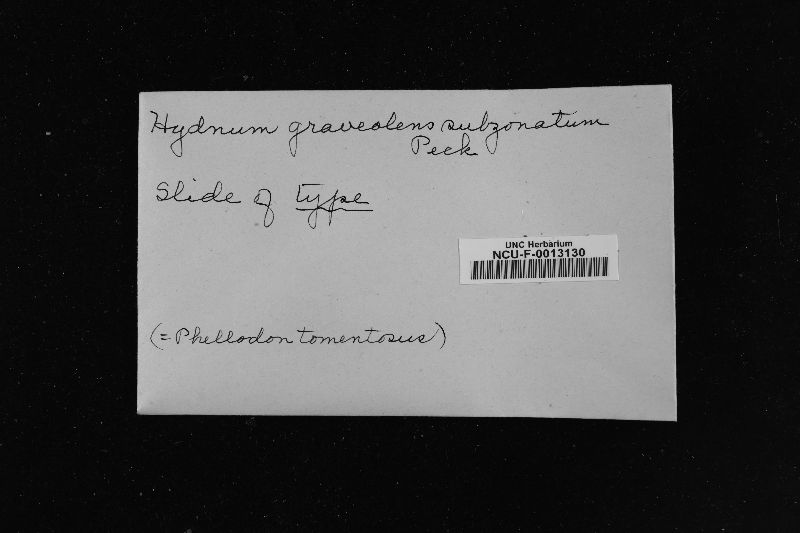 Hydnum graveolens subzonatum
Peck
Slide of type
UNC Herbarium
NCU-F-0013130
(= Phellodon tomentosus)